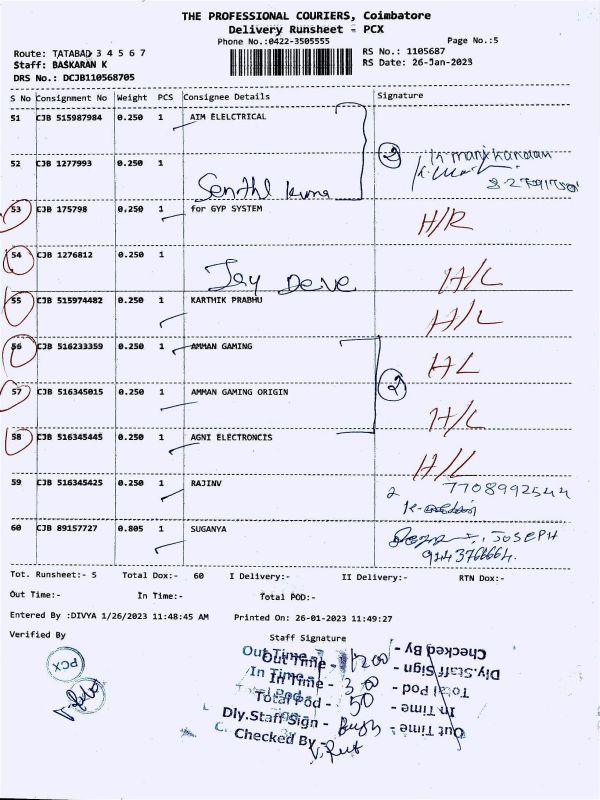 THE PROFESSIONAL COURIERS, Coimbatore
Delivery Runsheet - PCX
Phone No.:0422-3505555
Page No.:5
Route: TATABAD 3 4 5 6 7
Staff: BASKARAN K
DRS No.: DCJB110568705
RS No.: 1105687
RS Date: 26-Jan-2023
S No Consignment No Weight PCS Consignee Details Signature
51 CJB 515987984 0.250 1 AIM ELELCTRICAL
2 K manikandan
52 CJB 1277993 0.250 1
Senthil kuma
53 CJB 175798 0.250 1 for GYP SYSTEM H/R
54 CJB 1276812 0.250 1
Jay Deve H/L
55 CJB 515974482 0.250 1 KARTHIK PRABHU H/L
56 CJB 516233359 0.250 1 AMMAN GAMING HL
2
57 CJB 516345015 0.250 1 AMMAN GAMING ORIGIN H/L
58 CJB 516345445 0.250 1 AGNI ELECTRONCIS H/L
59 CJB 516345425 0.250 1 RAJINV 2 7708992544
60 CJB 89157727 0.805 1 SUGANYA JOSEPH
9143766664.
Tot. Runsheet:- 5 Total Dox:- 60 I Delivery:- II Delivery:- RTN Dox:-
Out Time:- In Time:- Total POD:-
Entered By :DIVYA 1/26/2023 11:48:45 AM Printed On: 26-01-2023 11:49:27
Verified By Staff Signature
PCX
Out Time - 1200
In Time - 300
Total Pod - 50
Dly.Staff Sign -
Checked By -
Checked By -
Dly.Staff Sign -
Total Pod -
In Time -
Out Time -